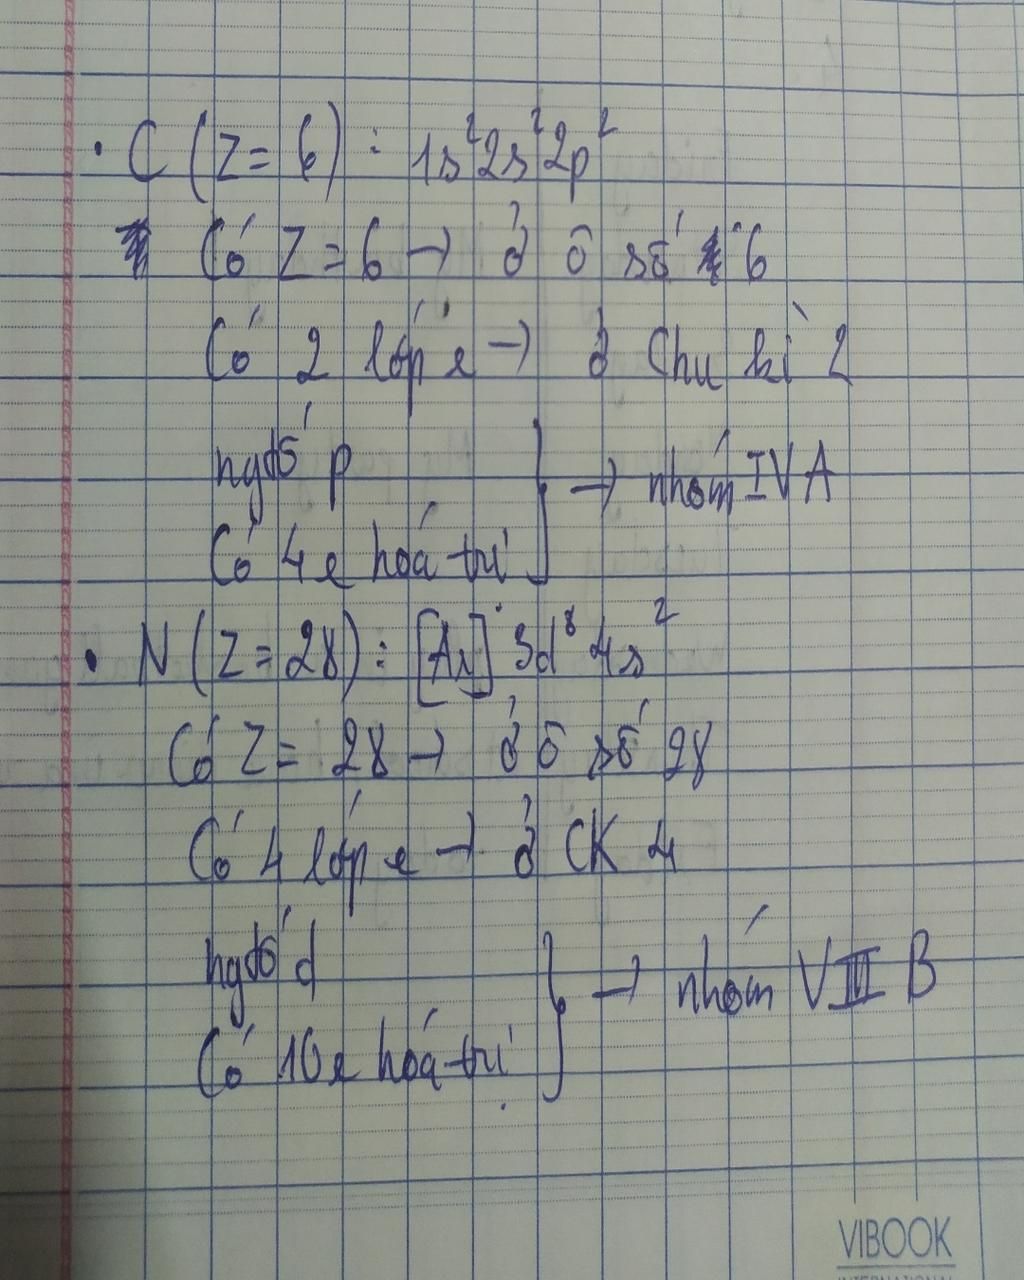 • C (Z = 6) : 1s²2s²2p²
Có Z = 6 → ở ô số 6
Có 2 lớp e → ở Chu kì 2
ngtố p
Có 4e hoá trị } → nhóm IVA
• N (Z = 28) : [Ar] 3d⁸ 4s²
Có Z = 28 → ở ô số 28
Có 4 lớp e → ở CK 4
ngtố d
Có 10e hoá trị } → nhóm VIIIB
VIBOOK
INTERNATIONAL